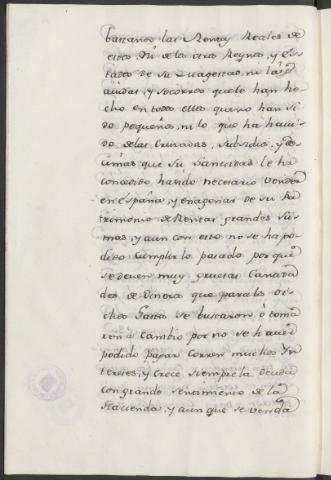 bastarian las Rentas Reales de
estos Ni de los otros Reynos, y Es
tados de su Magestad, ni las
ayudas, y socorros que le han he
cho en todos ellos que no han si
do pequeños, ni lo que ha havi
do de las Cruzadas, Subsidios, y de
cimas que su Santidad le ha
concedido ha sido necesario vender
en España, y enagenar de su Pa
trimonio de Rentas grandes su
mas, y aun con esto no se ha po
dido cumplir lo pasado por que
se deven muy gruesas Cantida
des de Dineros que para los di
chos Gastos se buscaron, ô toma
ron â Cambio por no se haver
podido pagar corren muchos Yn
tereses, y crece siempre la deuda
con grande crecimiento de la
Hacienda, y aun que se vendan